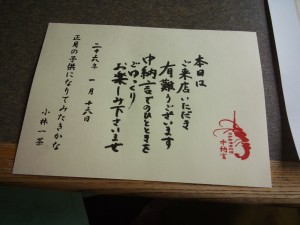 本日は
ご来店いただき
有難うございます
中納言でのひとときを
ごゆっくり
お楽しみ下さいませ
二十六年 一月 十六日
正月の子供になりてみたきかな
小林一茶
中納言